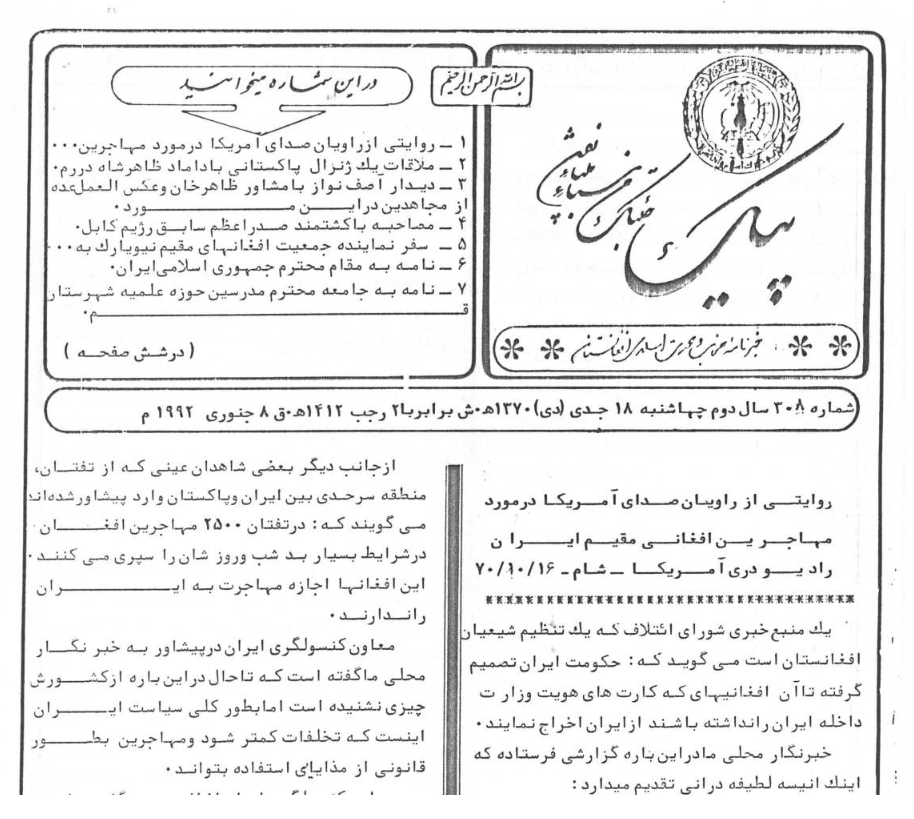 بسم الله الرحمن الرحیم
پیک
خبرنامه حزبی و حرکت اسلامی افغانستان
در این شماره میخوانید
۱ ــ روایتی ازراویان صدای آمریکا درمورد مهاجرین۰۰۰
۲ ــ ملاقات یك ژنرال پاکستانی باداماد ظاهرشاه دررم۰
۳ ــ دیدار آصف نواز بامشاور ظاهرخان وعکس العمل‌عده
از مجاهدین دراین مورد۰
۴ ــ مصاحبه باکشتمند صدراعظم سابق رژیم کابل۰
۵ ــ سفر نماینده جمعیت افغانهای مقیم نیویارك به۰۰۰
۶ ــ نامه به مقام محترم جمهوری اسلامی‌ایران۰
۷ ــ نامه به جامعه محترم مدرسین حوزه علمیه شهرستان
قم۰
( درشش صفحه )
شماره ۳۰۸ سال دوم چهاشنبه ۱۸ جدی (دی) ۱۳۷۰ه۰ش برابربا۲ رجب ۱۴۱۲ه۰ق ۸ جنوری ۱۹۹۲ م
روایتی از راویان صدای آمریکا درمورد
مهاجرین افغانی مقیم ایران
رادیو دری آمریکا ــ شام ــ ۷۰/۱۰/۱۶
یك منبع خبری شورای ائتلاف که یك تنظیم شیعیان
افغانستان است می گوید که : حکومت ایران تصمیم
گرفته تاآن افغانیهای که کارت های هویت وزارت
داخله ایران رانداشته باشند ازایران اخراج نمایند۰
خبرنگار محلی مادراین باره گزارشی فرستاده که
اینك انیسه لطیفه درانی تقدیم میدارد :
ازجانب دیگر بعضی شاهدان عینی که از تفتان،
منطقه سرحدی بین ایران وپاکستان وارد پیشاورشده‌اند
می گویند که : درتفتان ۲۵۰۰ مهاجرین افغان
درشرایط بسیار بد شب وروز شان را سپری می کنند۰
این افغانها اجازه مهاجرت به ایران
راندارند۰
معاون کنسولگری ایران درپیشاور به خبر نگار
محلی ماگفته است که تاحال دراین باره ازکشورش
چیزی نشنیده است امابطور کلی سیاست ایران
اینست که تخلفات کمتر شود ومهاجرین بطور
قانونی از مذایای استفاده بتواند۰